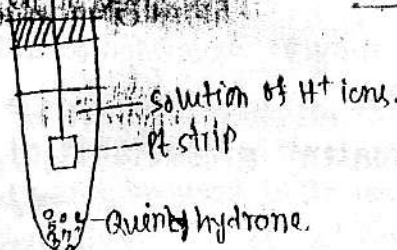 solution of H+ ions.
Pt strip
Quinhydrone.